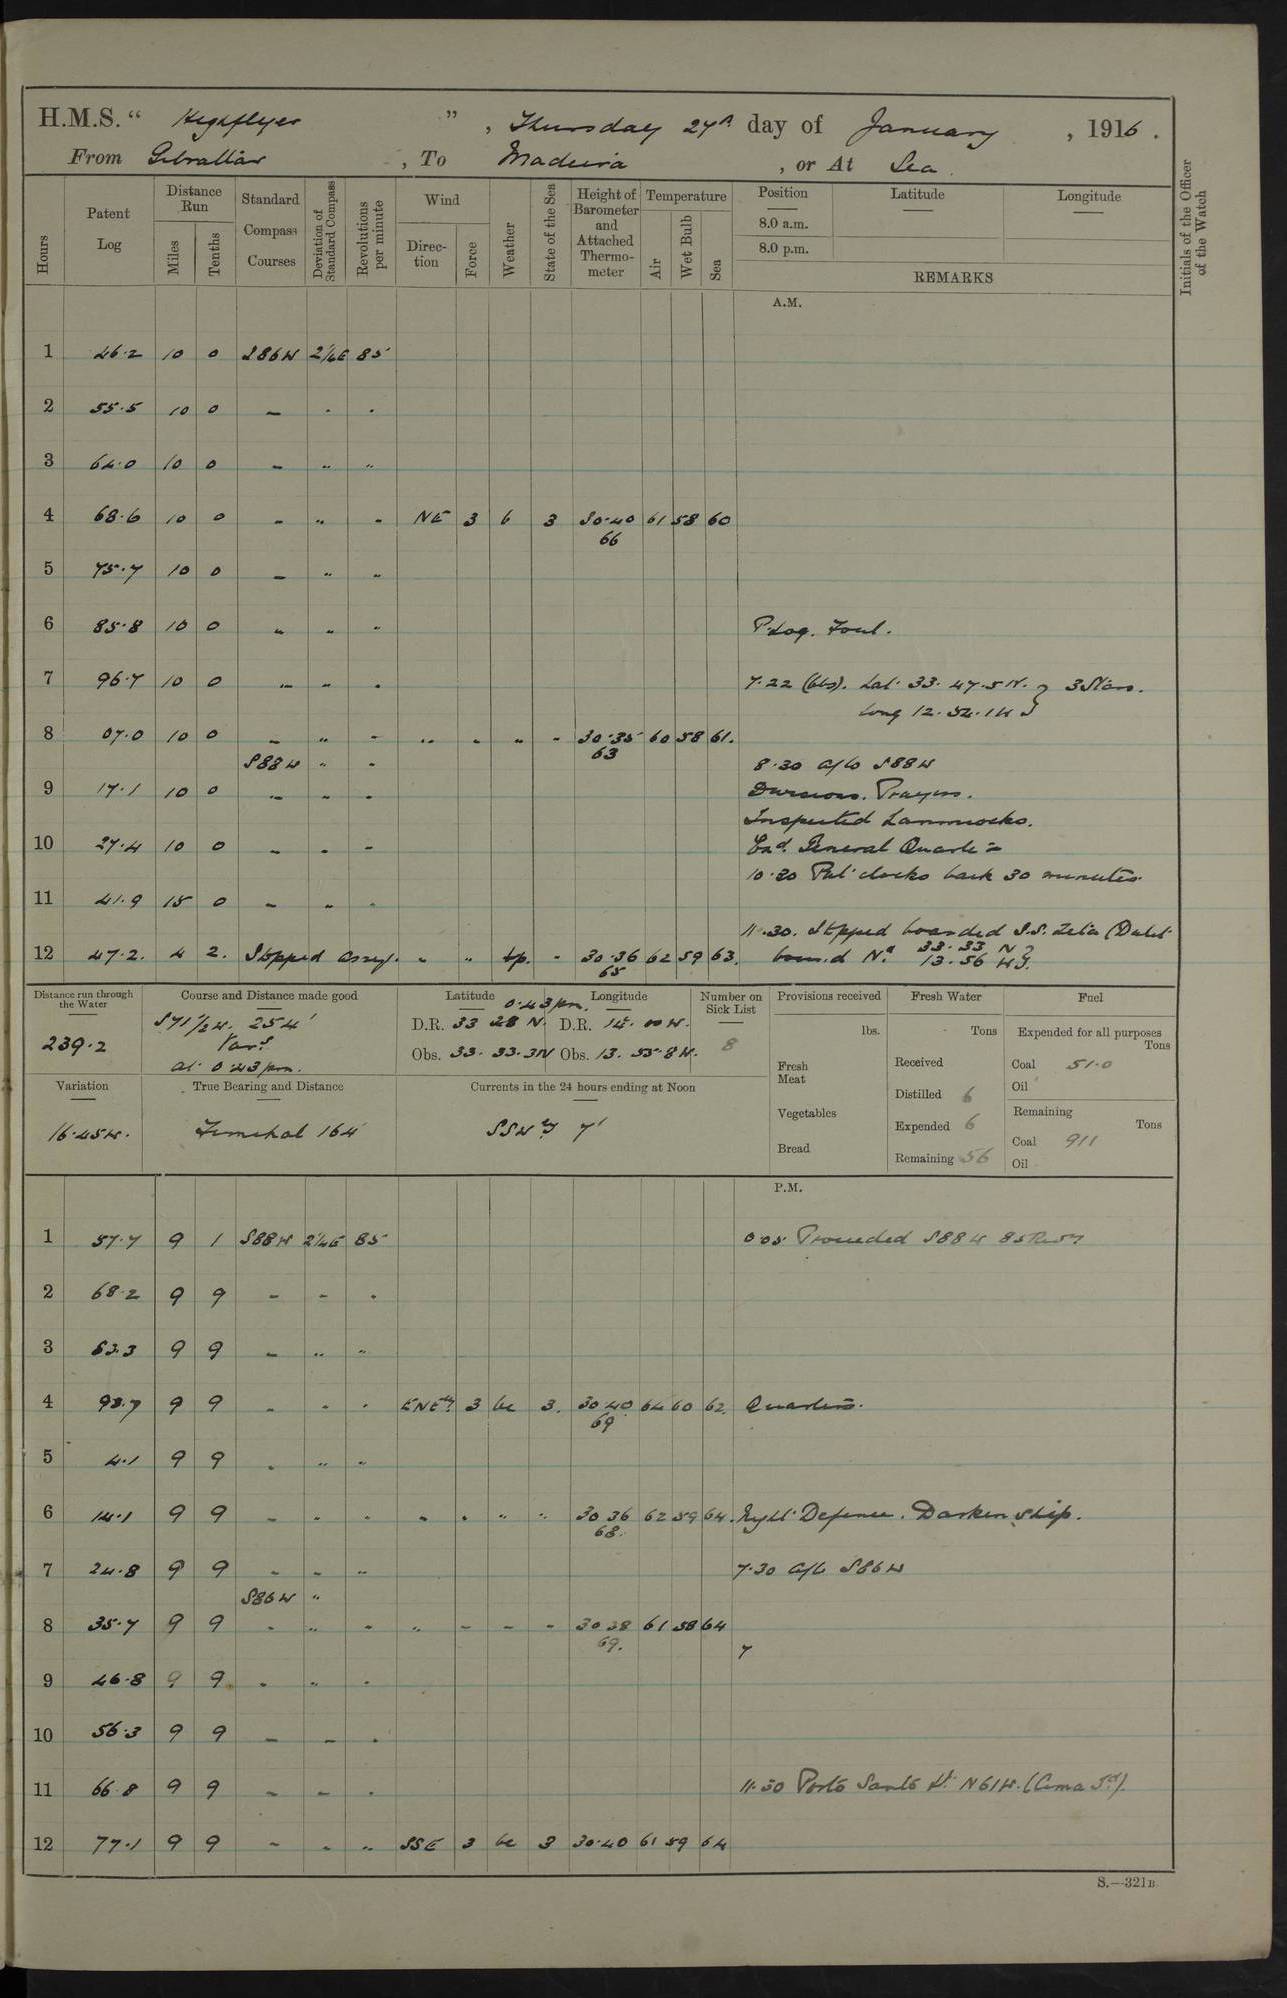 H.M.S. " Highflyer " , Thursday 27th day of January , 1916 .
From Gibraltar , To Madeira , or At Sea .
Hours
Patent Log
Distance Run
Miles
Tenths
Standard Compass Courses
Deviation of Standard Compass
Revolutions per minute
Wind
Direction
Force
Weather
State of the Sea
Height of Barometer and Attached Thermometer
Temperature
Air
Wet Bulb
Sea
Position
8.0 a.m.
8.0 p.m.
Latitude
Longitude
REMARKS
Initials of the Officer of the Watch
A.M.
1 46.2 10 0 S86W 2¼E 85
2 55.5 10 0 - . .
3 64.0 10 0 - " "
4 68.6 10 0 - " - NE 3 b 3 30.40 61 58 60
66
5 75.7 10 0 - " "
6 85.8 10 0 " " " P. Log. Foul.
7 96.7 10 0 " " . 7.22 (obs). Lat. 33. 47.5 N. } 3 Stars.
Long 12. 52. 1 W
8 07.0 10 0 - " - " . " - 30.35 60 58 61.
63
S88W " - 8.30 a/c S88W
9 17.1 10 0 - " . Divisions. Prayers.
Inspected Hammocks.
10 27.4 10 0 - - - Exd. General Quarters
10.30 Put clocks back 30 minutes
11 41.9 15 0 - " .
11.30. Stopped boarded S.S. Zeta (Dutch
12 47.2. 4 2. Stopped assy. " " bp. - 30.36 62 59 63. bound Nd 33. 33 N
65 13. 56 W
Distance run through the Water
239.2
Course and Distance made good
S71½W. 254'
Vars
at 0.43 pm.
Latitude 0.43 pm. Longitude
D.R. 33 28 N. D.R. 14. 00 W.
Obs. 33. 33.3N Obs. 13. 55.8W.
Number on Sick List
8
Provisions received
lbs.
Fresh Meat
Vegetables
Bread
Fresh Water
Tons
Received
Distilled 6
Expended 6
Remaining 56
Fuel
Expended for all purposes
Tons
Coal 51.0
Oil
Remaining
Tons
Coal 911
Oil
Variation
16.45W.
True Bearing and Distance
Funchal 164
Currents in the 24 hours ending at Noon
SSWly 7'
P.M.
1 57.7 9 1 S88W 2¼E 85 0.05 Proceeded S88W 85 Revs
2 68.2 9 9 - - .
3 83.3 9 9 - " "
4 93.7 9 9 - - . ENEly 3 bc 3. 30 40 64 60 62. Quarters.
69
5 4.1 9 9 . " "
6 14.1 9 9 - . . . . " " 30 36 62 59 64. Night Defence. Darken ship.
68.
7 24.8 9 9 - - " 7.30 a/c S86W
S86W "
8 35.7 9 9 . " - " - - - 30 38 61 58 64
69.
7
9 46.8 9 9 . " .
10 56.3 9 9 - - .
11 66.8 9 9 - - . 11.50 Porto Santo Lt N61W. (Cima Id).
12 77.1 9 9 - . " SSE 3 bc 3 30.40 61 59 64
S.—321B.